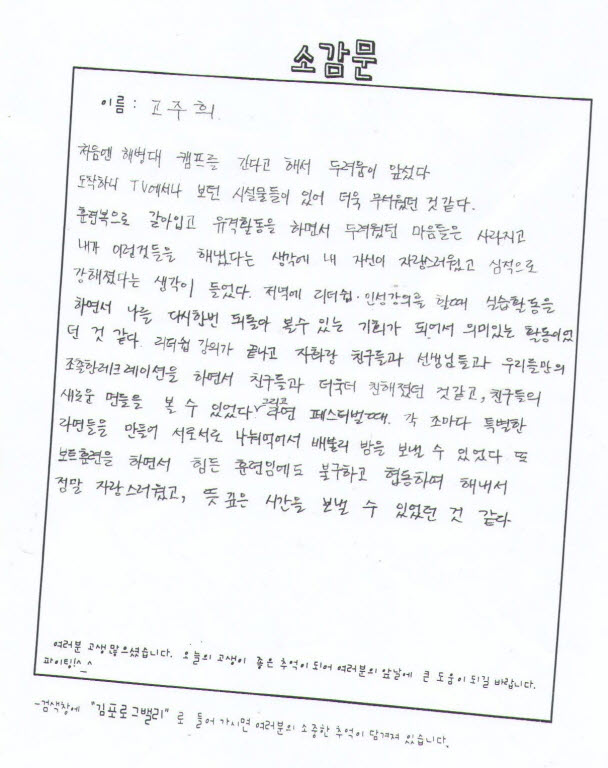 소감문
이름 : 고주희
처음엔 해병대 캠프를 간다고 해서 두려움이 앞섰다
도착하니 TV에서나 보던 시설물들이 있어 더욱 무서웠던 것 같다.
훈련복으로 갈아입고 유격활동을 하면서 두려웠던 마음들은 사라지고
내가 이런것들을 해냈다는 생각에 내 자신이 자랑스러웠고 심적으로
강해졌다는 생각이 들었다. 저녁에 리더쉽·인성강의를 할때 실습활동을
하면서 나를 다시한번 되돌아 볼수 있는 기회가 되어서 의미있는 활동이었
던 것 같다. 리더쉽 강의가 끝나고 자화랑 친구들과 선생님들과 우리들만의
조촐한레크레이션을 하면서 친구들과 더욱더 친해졌던 것같고, 친구들의
새로운 면들을 볼 수 있었다 라면 페스티벌때. 각 조마다 특별한
라면들을 만들어 서로서로 나눠먹어서 배불리 밤을 보낼 수 있었다 또
보트훈련을 하면서 힘든 훈련임에도 불구하고 협동하여 해내서
정말 자랑스러웠고, 뜻 깊은 시간을 보낼 수 있었던 것 같다
여러분 고생많으셨습니다. 오늘의 고생이 좋은 추억이 되어 여러분의 앞날에 큰 도움이 되길 바랍니다.
파이팅!^_^
-검색창에 "김포로그밸리" 로 들어 가시면 여러분의 소중한 추억이 담겨져 있습니다.